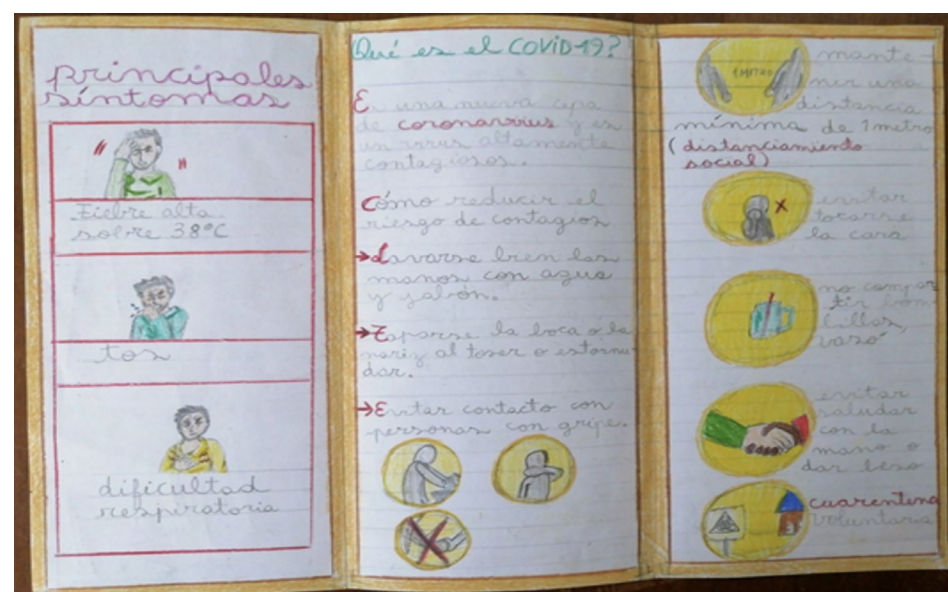 principales
síntomas
Fiebre alta
sobre 38°C
tos
dificultad
respiratoria
¿Qué es el COVID-19?
E una nueva cepa
de coronavirius y es
un virus altamente
contagiosos.
Cómo reducir el
riesgo de contagios
→Lavarse bien las
manos con agua
y jabón.
→Taparse la boca o la
nariz al toser o estornu-
dar.
→Evitar contacto con
personas con gripe.
1 METRO
mante-
ner una
distancia
mínima de 1 metro
(distanciamiento
social)
evitar
tocarse
la cara
no compar
tir bom-
billas,
vaso
evitar
saludar
con la
mano o
dar beso
cuarentena
voluntaria